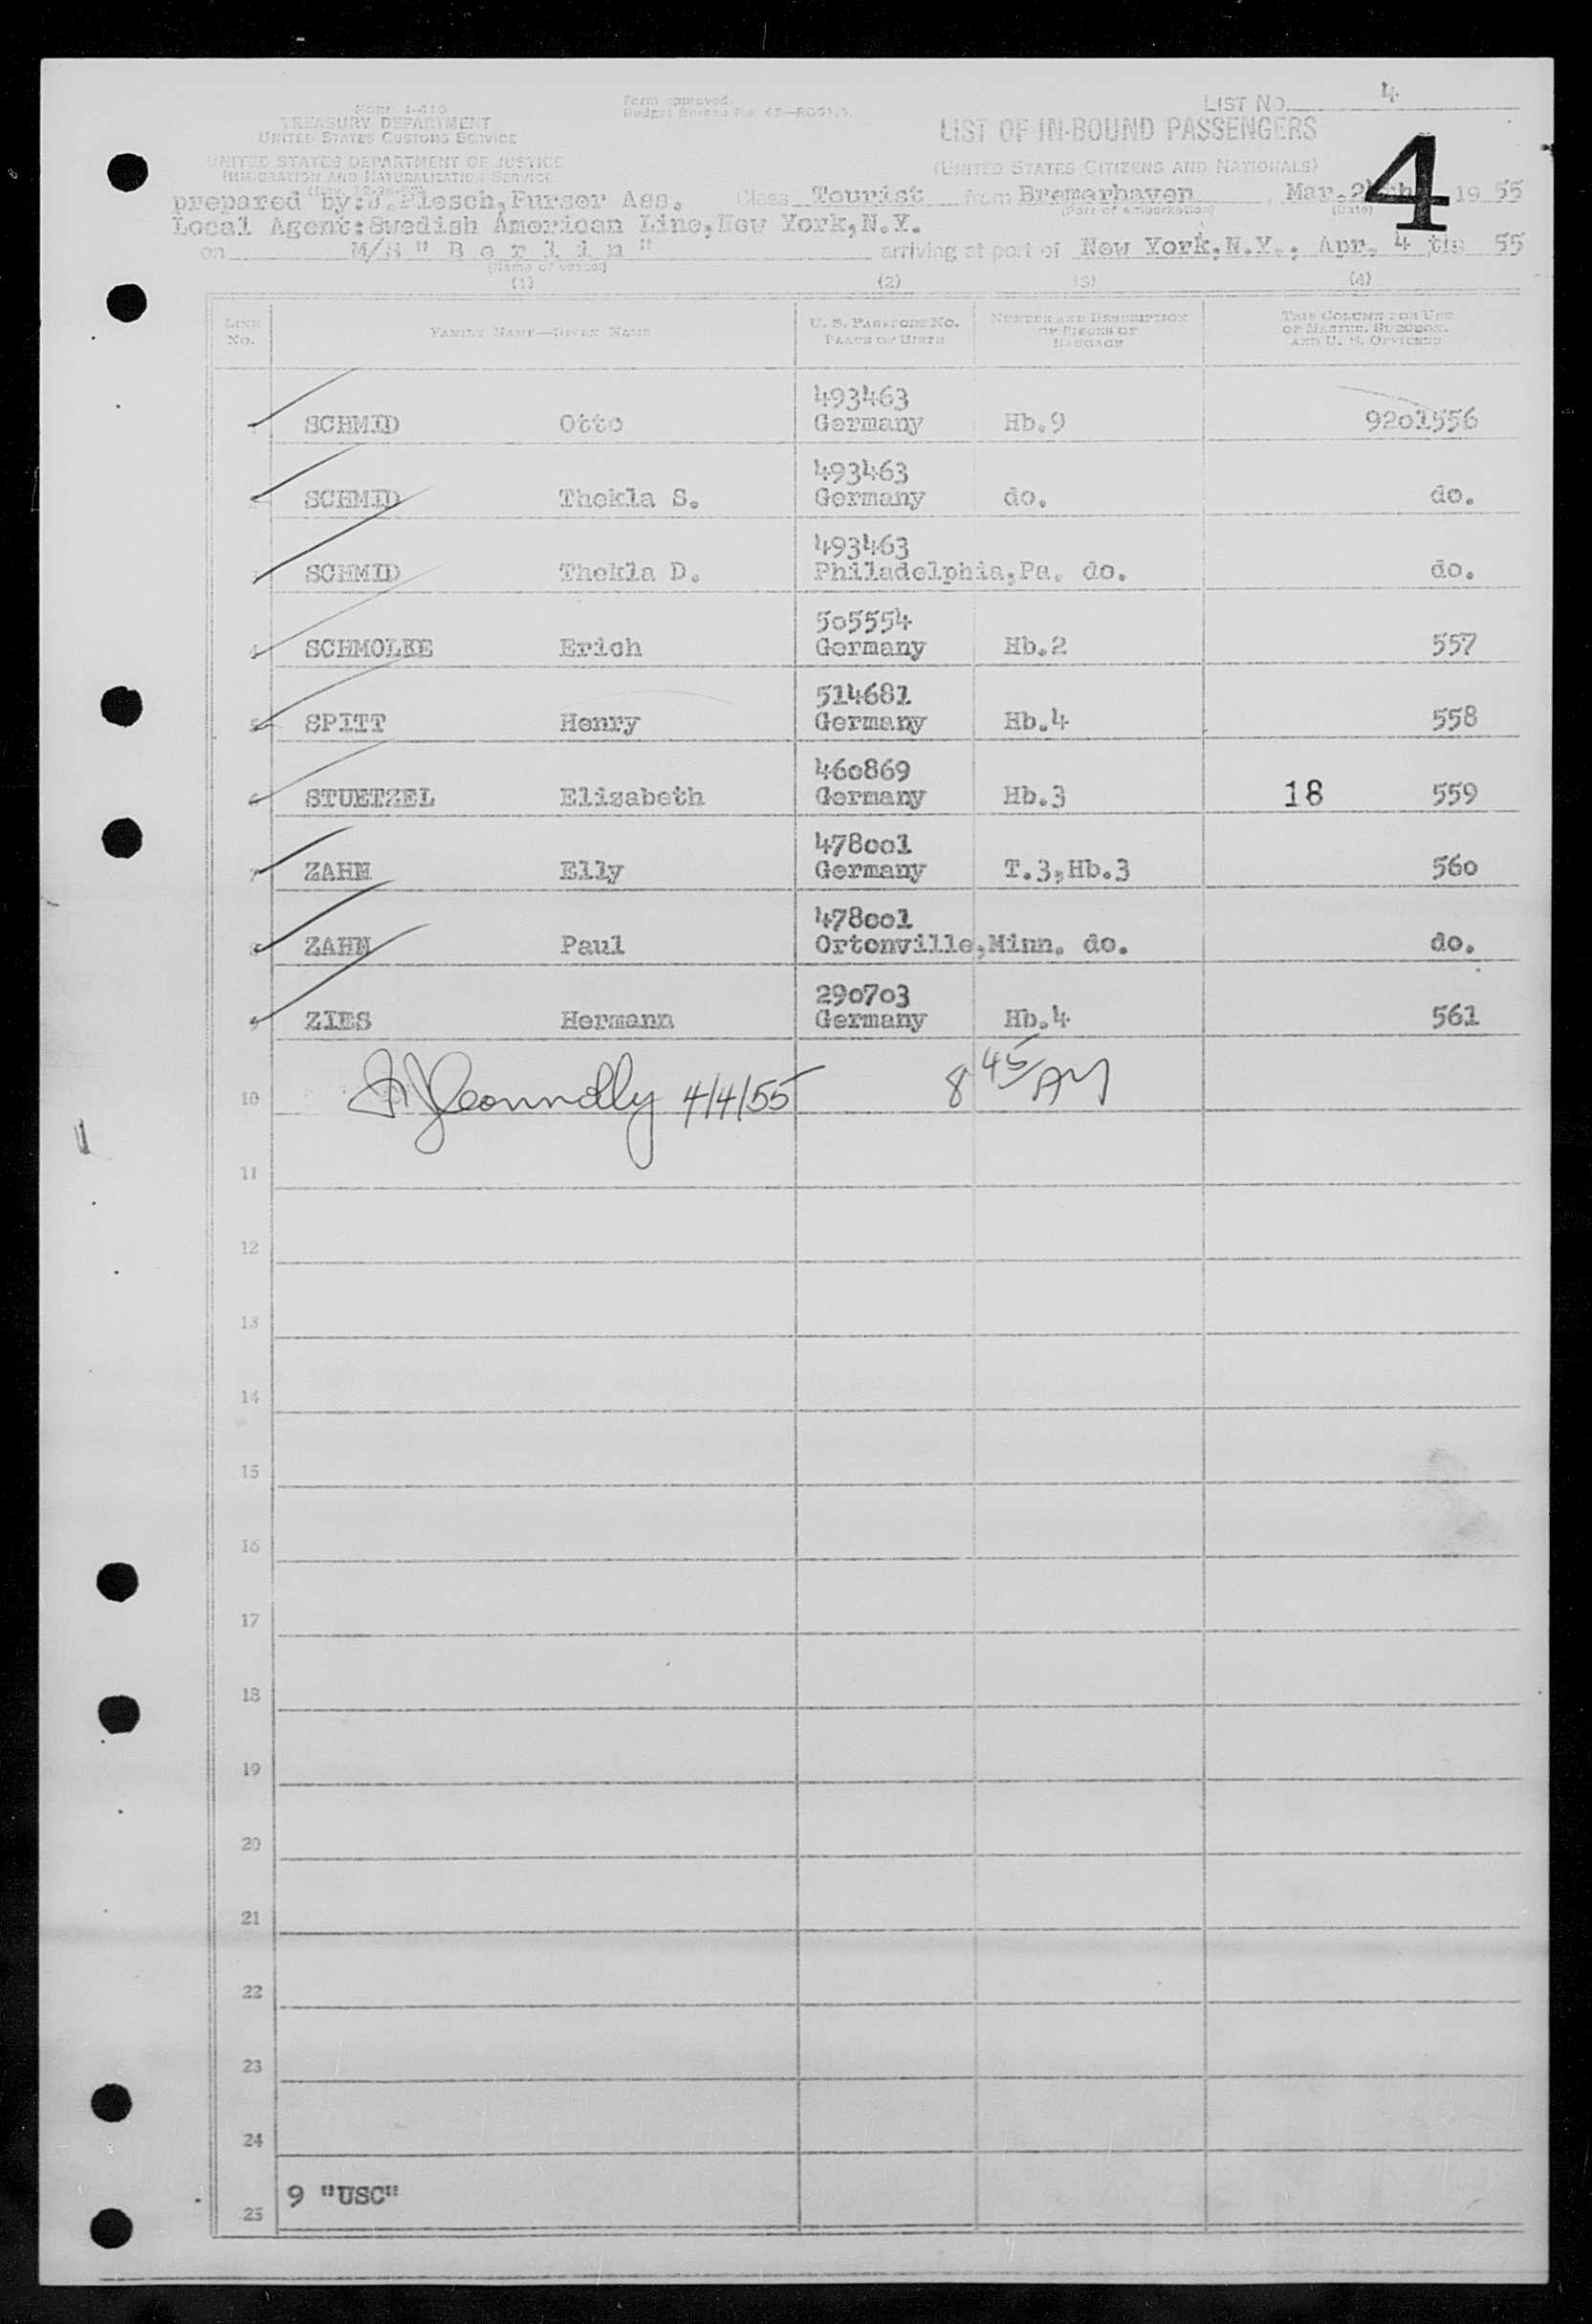 LIST No. 4
Form I-416
TREASURY DEPARTMENT
UNITED STATES CUSTOMS SERVICE
Form approved.
Budget Bureau No.
LIST OF IN-BOUND PASSENGERS
(UNITED STATES CITIZENS AND NATIONALS)
4
UNITED STATES DEPARTMENT OF JUSTICE
IMMIGRATION AND NATURALIZATION SERVICE
prepared by: J. Plesch, Purser Ass. Class Tourist from Bremerhaven, Mar. 19 55
(Port of embarkation) (Date)
Local Agent: Swedish American Line, New York, N.Y.
on M/S " B e r l i n " arriving at port of New York, N.Y., Apr. 4 th 55
(Name of vessel)
(1) (2) (3) (4)
LINE No. FAMILY NAME—GIVEN NAME U. S. PASSPORT No. PLACE OF BIRTH NUMBER AND DESCRIPTION OF PIECES OF BAGGAGE THIS COLUMN FOR USE OF MASTER, SURGEON, AND U. S. OFFICERS
493463
1 SCHMID Otto Germany Hb.9 9201556
493463
2 SCHMID Thekla S. Germany do. do.
493463
3 SCHMID Thekla D. Philadelphia,Pa. do. do.
505554
4 SCHMOLKE Erich Germany Hb.2 557
514681
5 SPITT Henry Germany Hb.4 558
460869
6 STUETZEL Elizabeth Germany Hb.3 18 559
478001
7 ZAHN Elly Germany T.3,Hb.3 560
478001
8 ZAHN Paul Ortonville,Minn. do. do.
290703
9 ZIES Hermann Germany Hb.4 561
10 Connolly 4/4/55 8 45 AM
11
12
13
14
15
16
17
18
19
20
21
22
23
24
9 "USC"
25